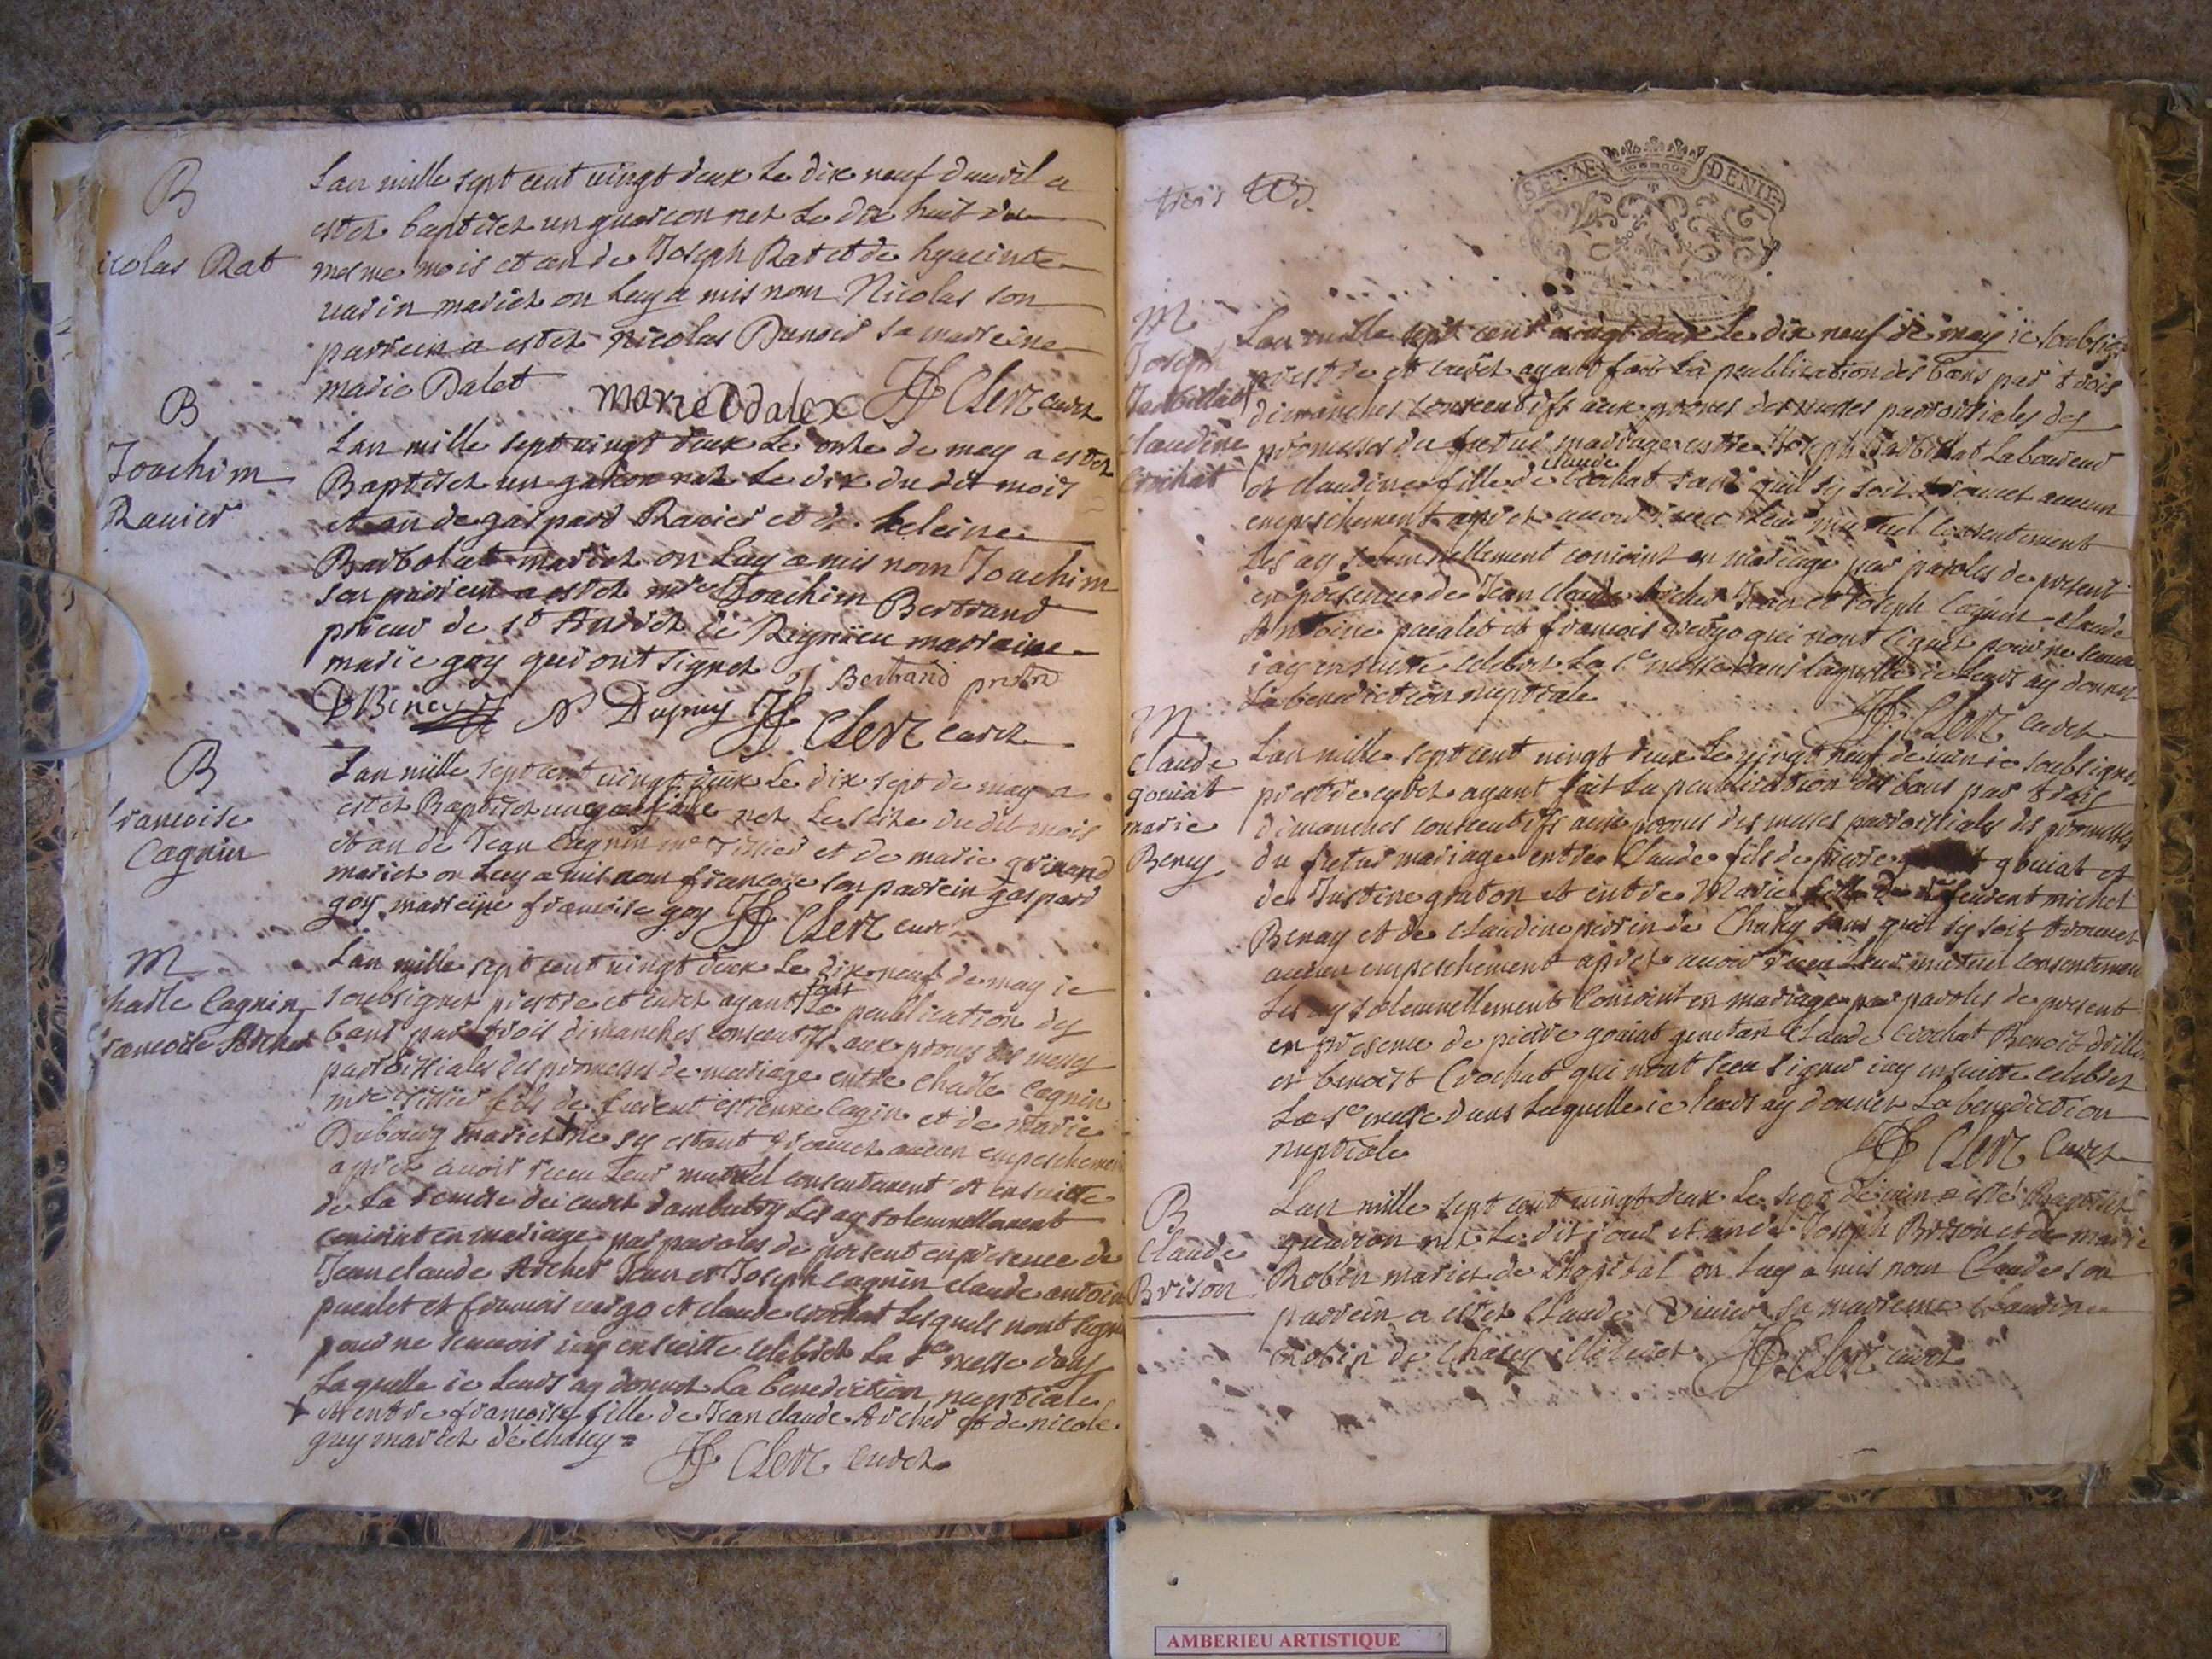 B
icolas Rat
Lan mille sept cent vingt deux Le dix neuf davril a
estez baptisez un guarcon nez Le dix huit du
mesme mois et an de Joseph Rat et de hyacinte
varin mariez on Luy a mis nom Nicolas son
parrein a estez Nicolas sa marreine
marie Dalet
marie dalex JF Clerc curez
B
Joachim
Ravier
Lan mille sept vingt deux Le onze de may a estez
Baptisez un garcon nez Le dix du dit mois
et an de gaspard Ravier et de heleine
Barbolat mariez on Luy a mis nom Joachim
son parrein a estez mre Joachim Bertrand
prieur de st André de Rignieu marraine
marie goy qui ont signez
Bertrand
N Dupuy JF Clerc curez
B
francoise
Cagnin
Lan mille sept cent vingt deux Le dix sept de may a
estez Baptisez une fille nez Le seize du dit mois
et an de Jean Cagnin me Tissier et de marie
mariez on Luy a mis nom francoise son parrein gaspard
goy marreine francoise goy JF Clerc curez
M
harle Cagnin
rancoise Archer
Lan mille sept cent vingt deux Le dix neuf de may ie
soubsignez prestre et curez ayant fait La publication des
bans par trois dimanches consecutifs aux prones des messes
parroissiales des promesses de mariage entre Charle Cagnin
mre Tissier fils de estienne Cagin et de marie
Dubourg mariez ne sy estant trouvez aucun empeschement
aprez avoir receu Leur mutuel consentement et ensuitte
de La remise du curez dambutry Les ay solemnellement
conioint en mariage par paroles de present en presence de
Jean claude Archer Jean et Joseph Cagnin claude antoine
pualet et francois et claude crochat Lesquels nont signez
pour ne scavoir iay ensuitte celebrez La ste messe dans
Laquelle ie Leurs ay donnez La benediction nuptiale
+ et entre francoise fille de Jean claude Archer et de nicole
guy mariez de chasey =
JF Clerc curez
trois
SETIEME DENIE
M
Joseph
claudine
Crochat
Lan mille sept cent vingt deux Le dix neuf de may ie soubsig
prestre et curez ayant fait La publication des bans par trois
dimanches consecutifs aux prones des messes parroissiales des
promesses du futur mariage entre Joseph Laboureur
et claudine fille de claude Crochat sans quil sy soit trouvez aucun
empeschement aprez avoir receu Leur mutuel consentement
Les ay solemnellement conioint en mariage par paroles de present
en presence de Jean claude Archer Jean et Joseph Cagnin claude
Antoine pualet et francois qui nont signez pour ne scavoir
iay ensuitte celebrez La ste messe dans laquelle ie Leurs ay donnez
La benediction nuptiale
JF Clerc curez
M
Claude
gouiat
marie
Beney
Lan mille sept cent vingt deux Le vingt neuf de iuin ie soubsignez
prestre curez ayant fait La publication des bans par trois
dimanches consecutifs aux prones des messes parroissiales des promesses
du futur mariage entre Claude fils de pierre gouiat et
de Justine graton et entre Marie fille de michel
Benay et de claudine perrin de Chasey sans quil sy soit trouvez
aucun empeschement aprez avoir receu Leur mutuel consentement
Les ay solemnellement conioint en mariage par paroles de present
en presence de pierre gouiat Claude crochat Benoit
et benoist Crochat qui nont sceu signer iay ensuitte celebrez
La ste messe dans Laquelle ie leurs ay donnez La benediction
nuptiale
JF Clerc Curez
B
Claude
Brison
Lan mille sept cent vingt deux Le sept de iuin a esté Baptisez
guarcon nez Le dit iour et an de Joseph Brison et de marie
Robin mariez de Lhopital on Luy a mis nom Claude son
parrein a estez Claude sa marreine claudine
Robin de Chasey illiterez JF Clerc curez
AMBERIEU ARTISTIQUE